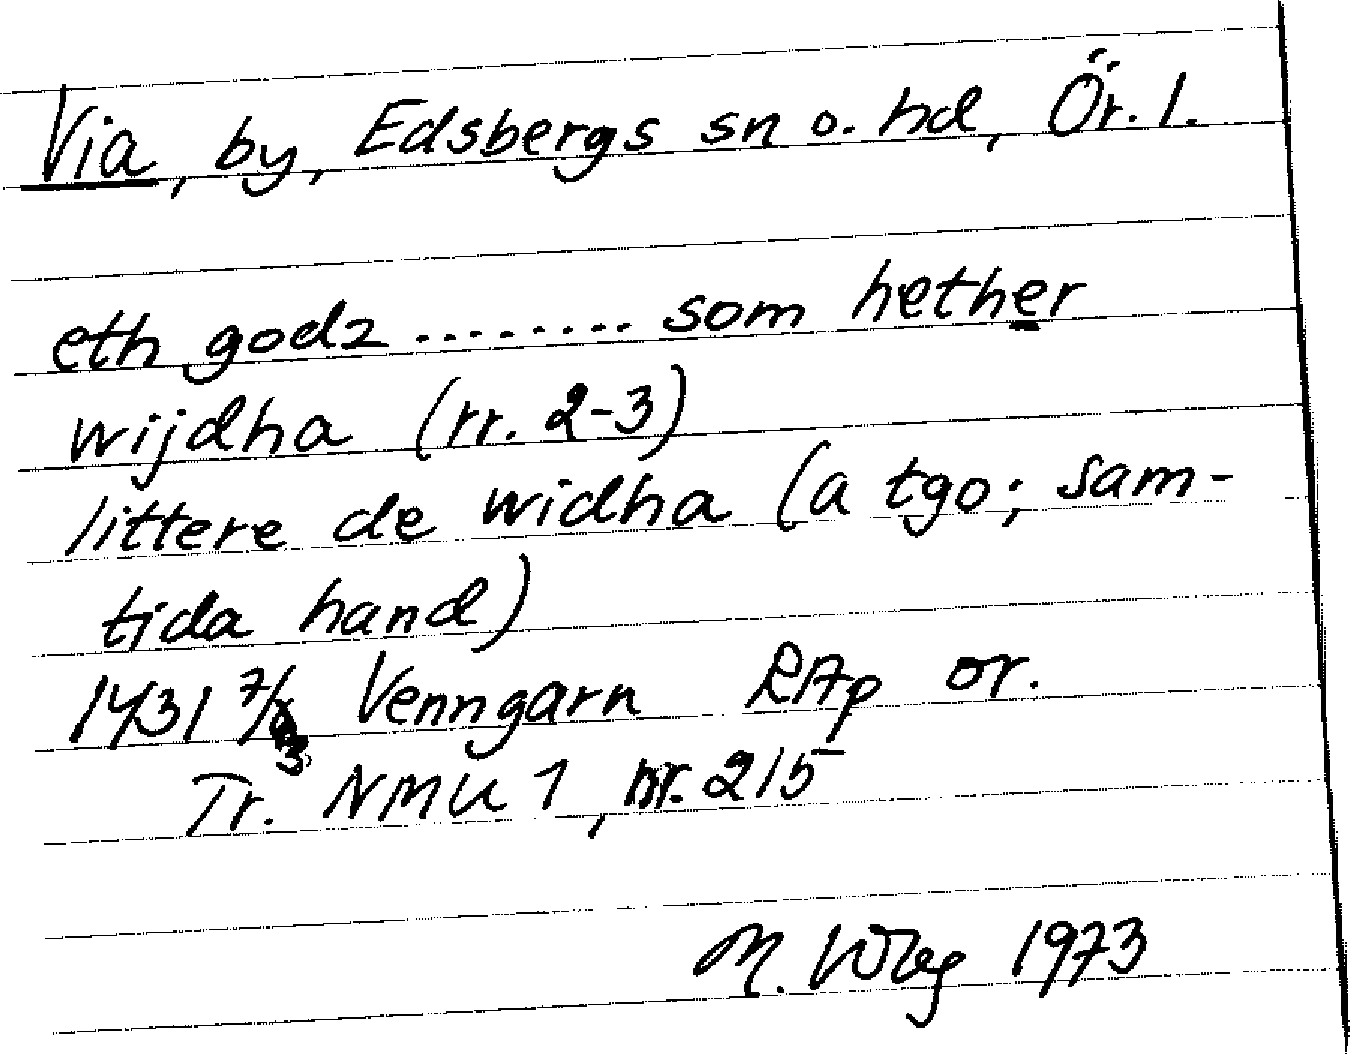 Via, by, Edsbergs sn o. hd, Ör. l.
eth godz ........ som hether
wijdha (rr. 2-3)
littere de widha (a tgo; sam-
tida hand)
1431 7/3 Venngarn RAp or.
Tr. NMU 1, nr. 215
M. 1973